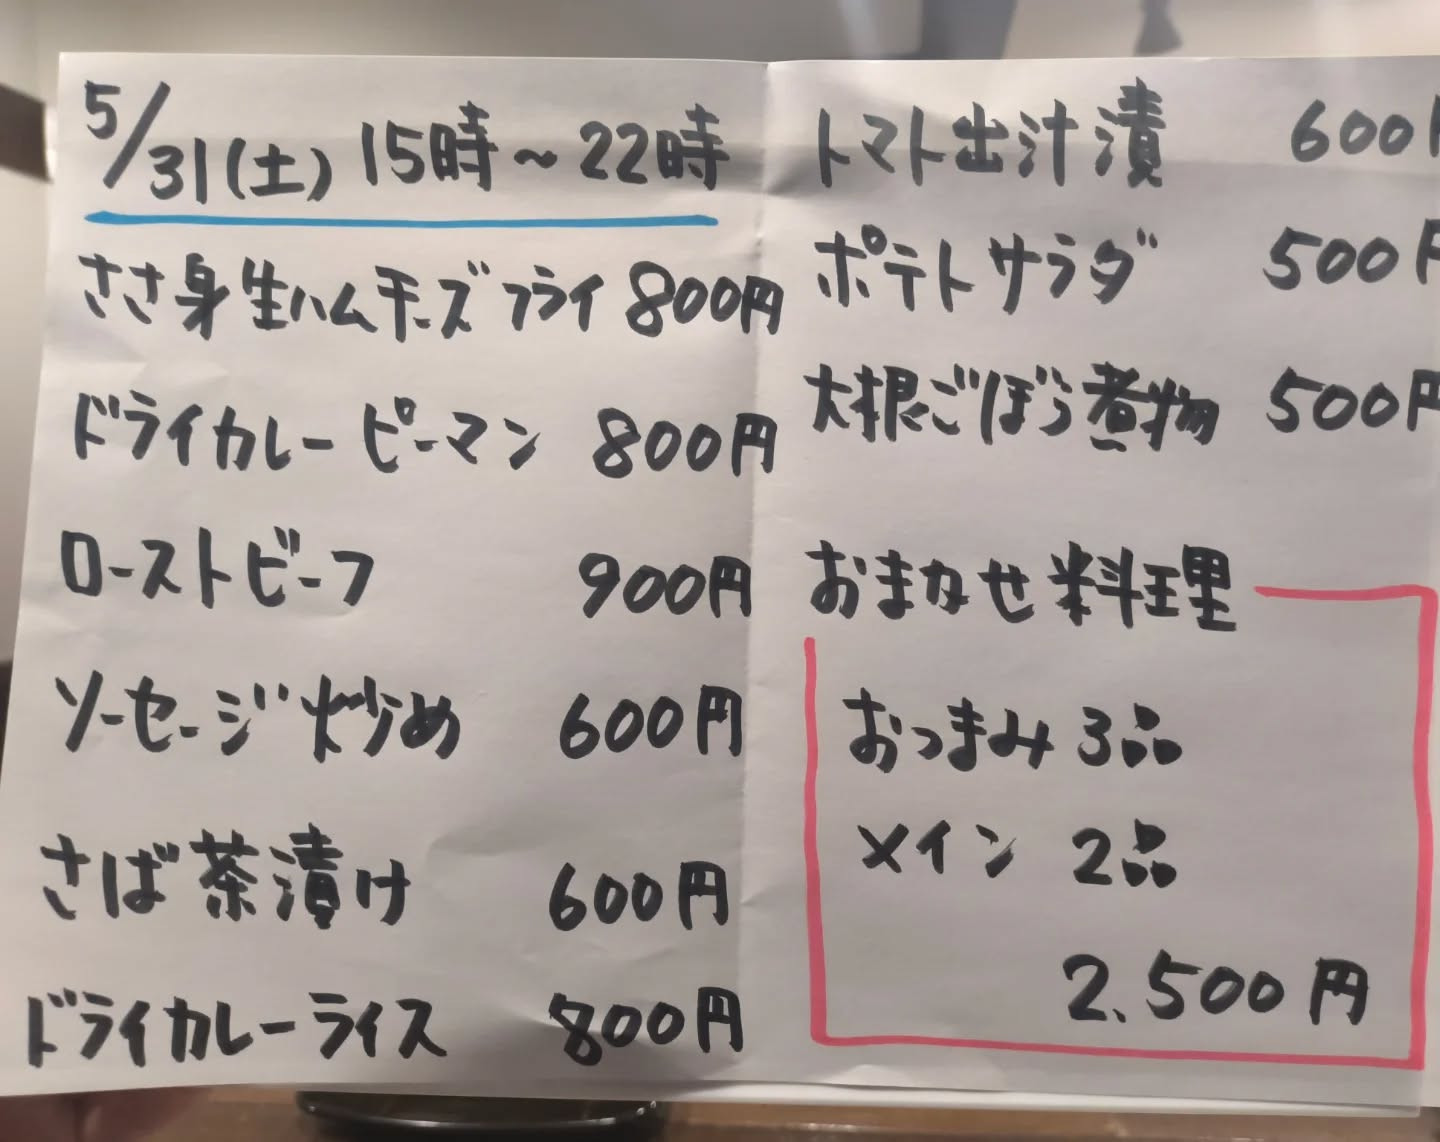 5/31(土) 15時～22時
ささ身生ハムチーズフライ 800円
ドライカレーピーマン 800円
ローストビーフ 900円
ソーセージ炒め 600円
さば茶漬け 600円
ドライカレーライス 800円
トマト出汁漬 600円
ポテトサラダ 500円
大根ごぼう煮物 500円
おまかせ料理
おつまみ 3品
メイン 2品
2,500円